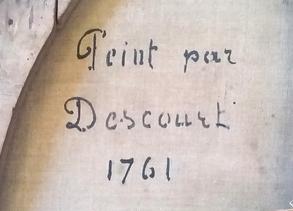 Peint par
Descourt
1761